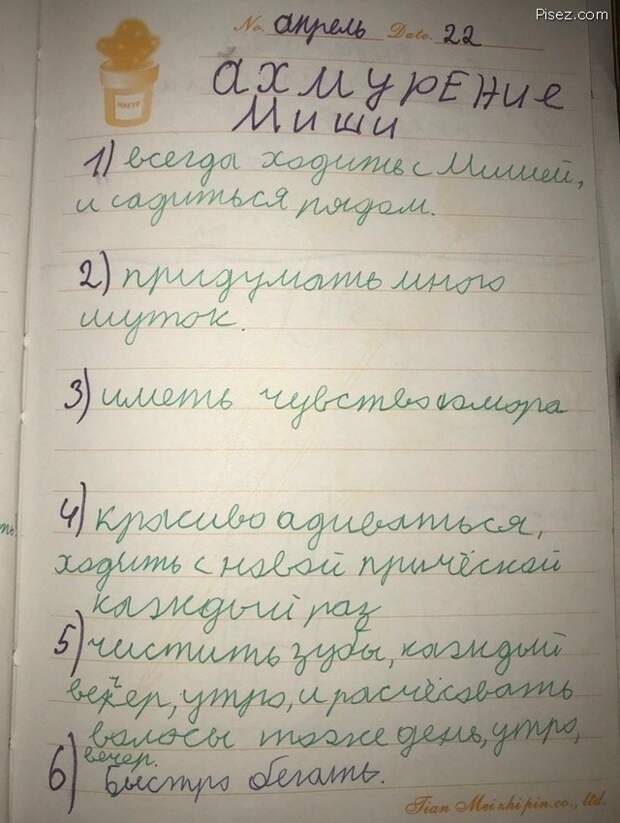 Pisez.com
No. апрель Date. 22
НАСТО
ахмурЕНИе
Миши
1) всегда ходить с Мишей,
и садиться рядом.
2) придумать много
шуток.
3) иметь чувство юмора
4) красиво адиваться,
ходить с новой причёской
каждый раз
5) чистить зубы, каждый
вечер, утро, и расчёсовать
волосы тоже день, утро,
вечер.
6) Быстро бегать.
ть
Tian Meizhipin.co., ltd.